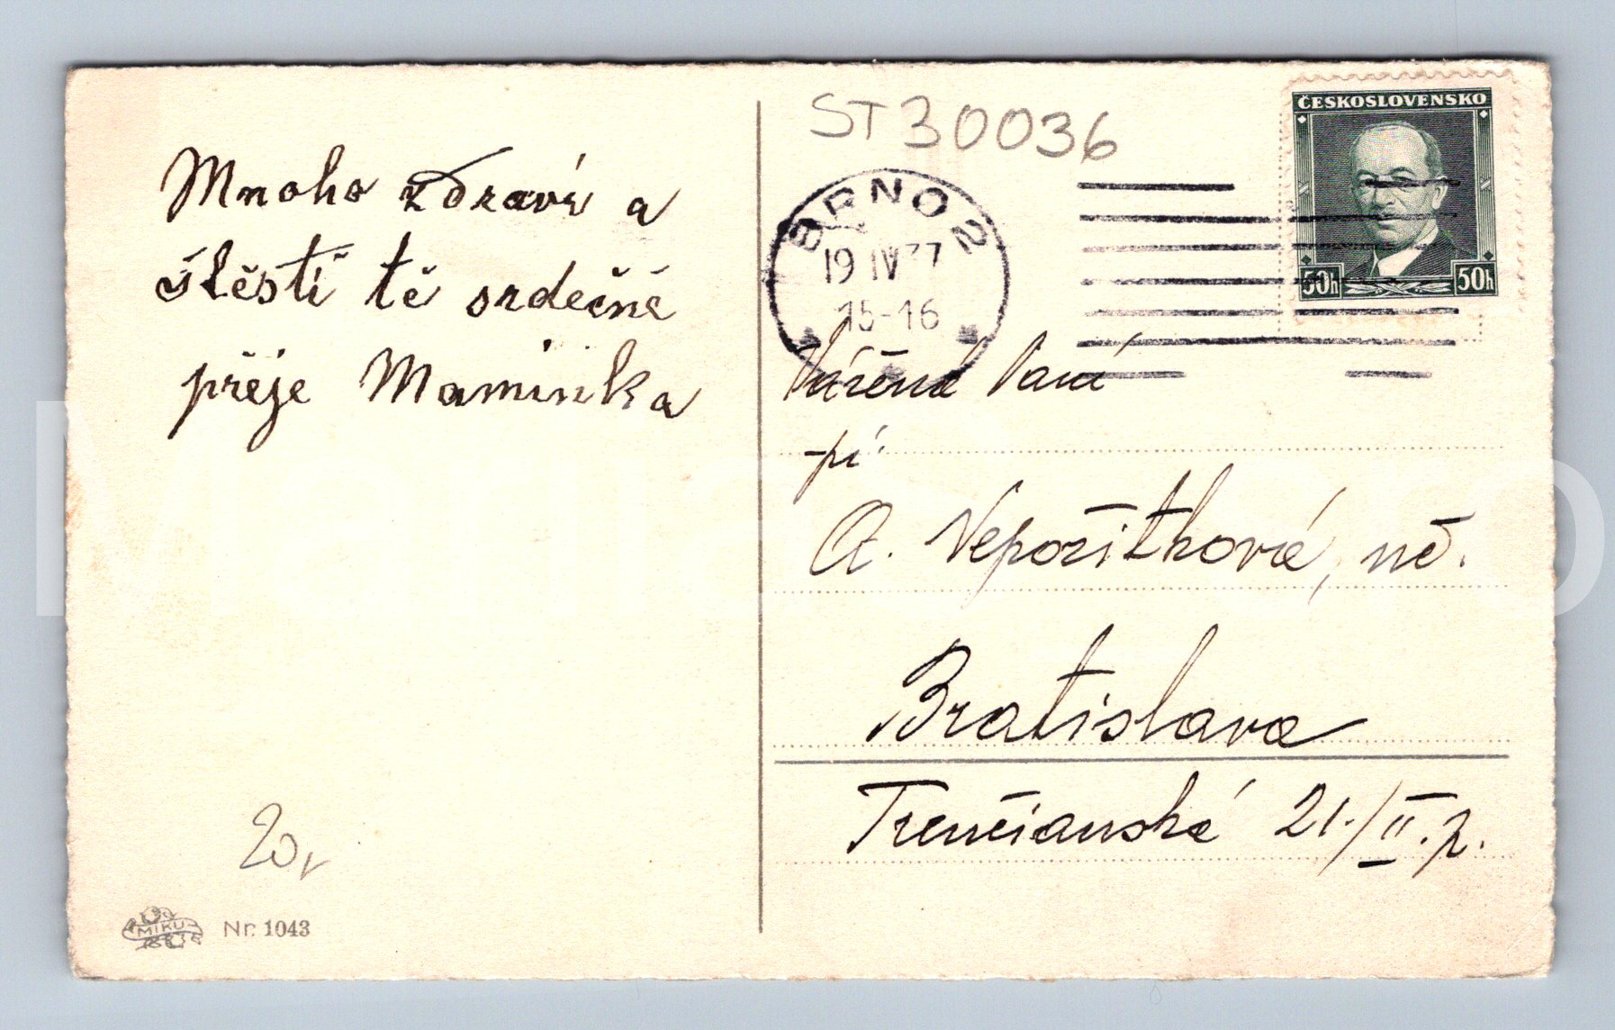 Mnoho zdraví a
štěstí tě srdečně
přeje Maminka
20,-
MIKU
Nr. 1043
ST30036
ČESKOSLOVENSKO
50h 50h
BRNO 2
19 IV 37
15-16
Vážená Paní
pí.
A. Nepožitková, uč.
Bratislava
Trenčianská 21./II.p.